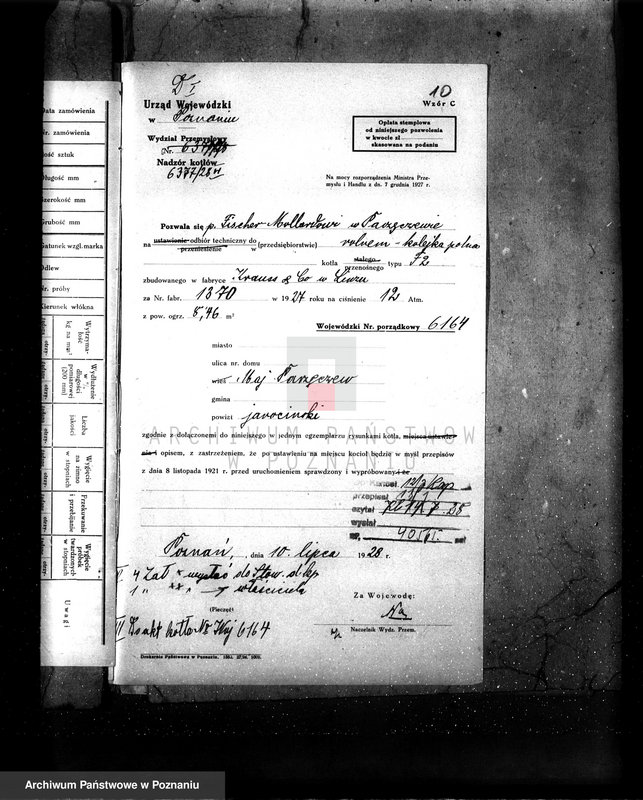 Data zamówienia
Nr. zamówienia
Ilość sztuk
Długość mm
Szerokość mm
Grubość mm
Gatunek wzgl. marka
Odlew
Nr. próby
Kierunek włókna
Wytrzymałość kg na mm²
Wydłużenie w % długości pomiarowej (200 mm)
Liczba jakości
Wygięcie na zimno w stopniach
Przekuwanie i przebijanie
Wygięcie próbek twardzonych w stopniach
Uwagi
D I
10
Urząd Wojewódzki
Wzór C
w Poznaniu
Wydział Przemysłowy
Nr.
Nadzór kotłów
6377/28 VI
Opłata stemplowa
od niniejszego pozwolenia
w kwocie zł
skasowana na podaniu
Na mocy rozporządzenia Ministra Prze-
mysłu i Handlu z dn. 7 grudnia 1927 r.
Pozwala się p. Fischer Mollardowi w Parzęczewie
na ustawienie odbiór techniczny do przeniesienie w (przedsiębiorstwie) rolnem - kolejka polna
kotła stałego przenośnego typu F2
zbudowanego w fabryce Krauss & Co w Linzu
za Nr. fabr. 1370 w 1927 roku na ciśnienie 12 Atm.
z pow. ogrz. 8,46 m²
Wojewódzki Nr. porządkowy 6164
miasto
ulica nr. domu
wieś Maj Parzęczew
gmina
powiat jarociński
zgodnie z dołączonemi do niniejszego w jednym egzemplarzu rysunkami kotła, miejsca ustawie-
nia i opisem, z zastrzeżeniem, że po ustawieniu na miejscu kocioł będzie w myśl przepisów
z dnia 8 listopada 1921 r. przed uruchomieniem sprawdzony i wypróbowany i że
przepisał
czytał
wysłał
Poznań, dnia 10. lipca 1928 r.
4 zał. wysłać do Stow. d. kp
1 " " właściciela
(Pieczęć)
Za Wojewodę:
Na
Naczelnik Wydz. Przem.
III Z akt kotła Nr Woj 6164
Drukarnia Państwowa w Poznaniu.
ARCHIWUM PAŃSTWOWE
W POZNANIU
Archiwum Państwowe w Poznaniu